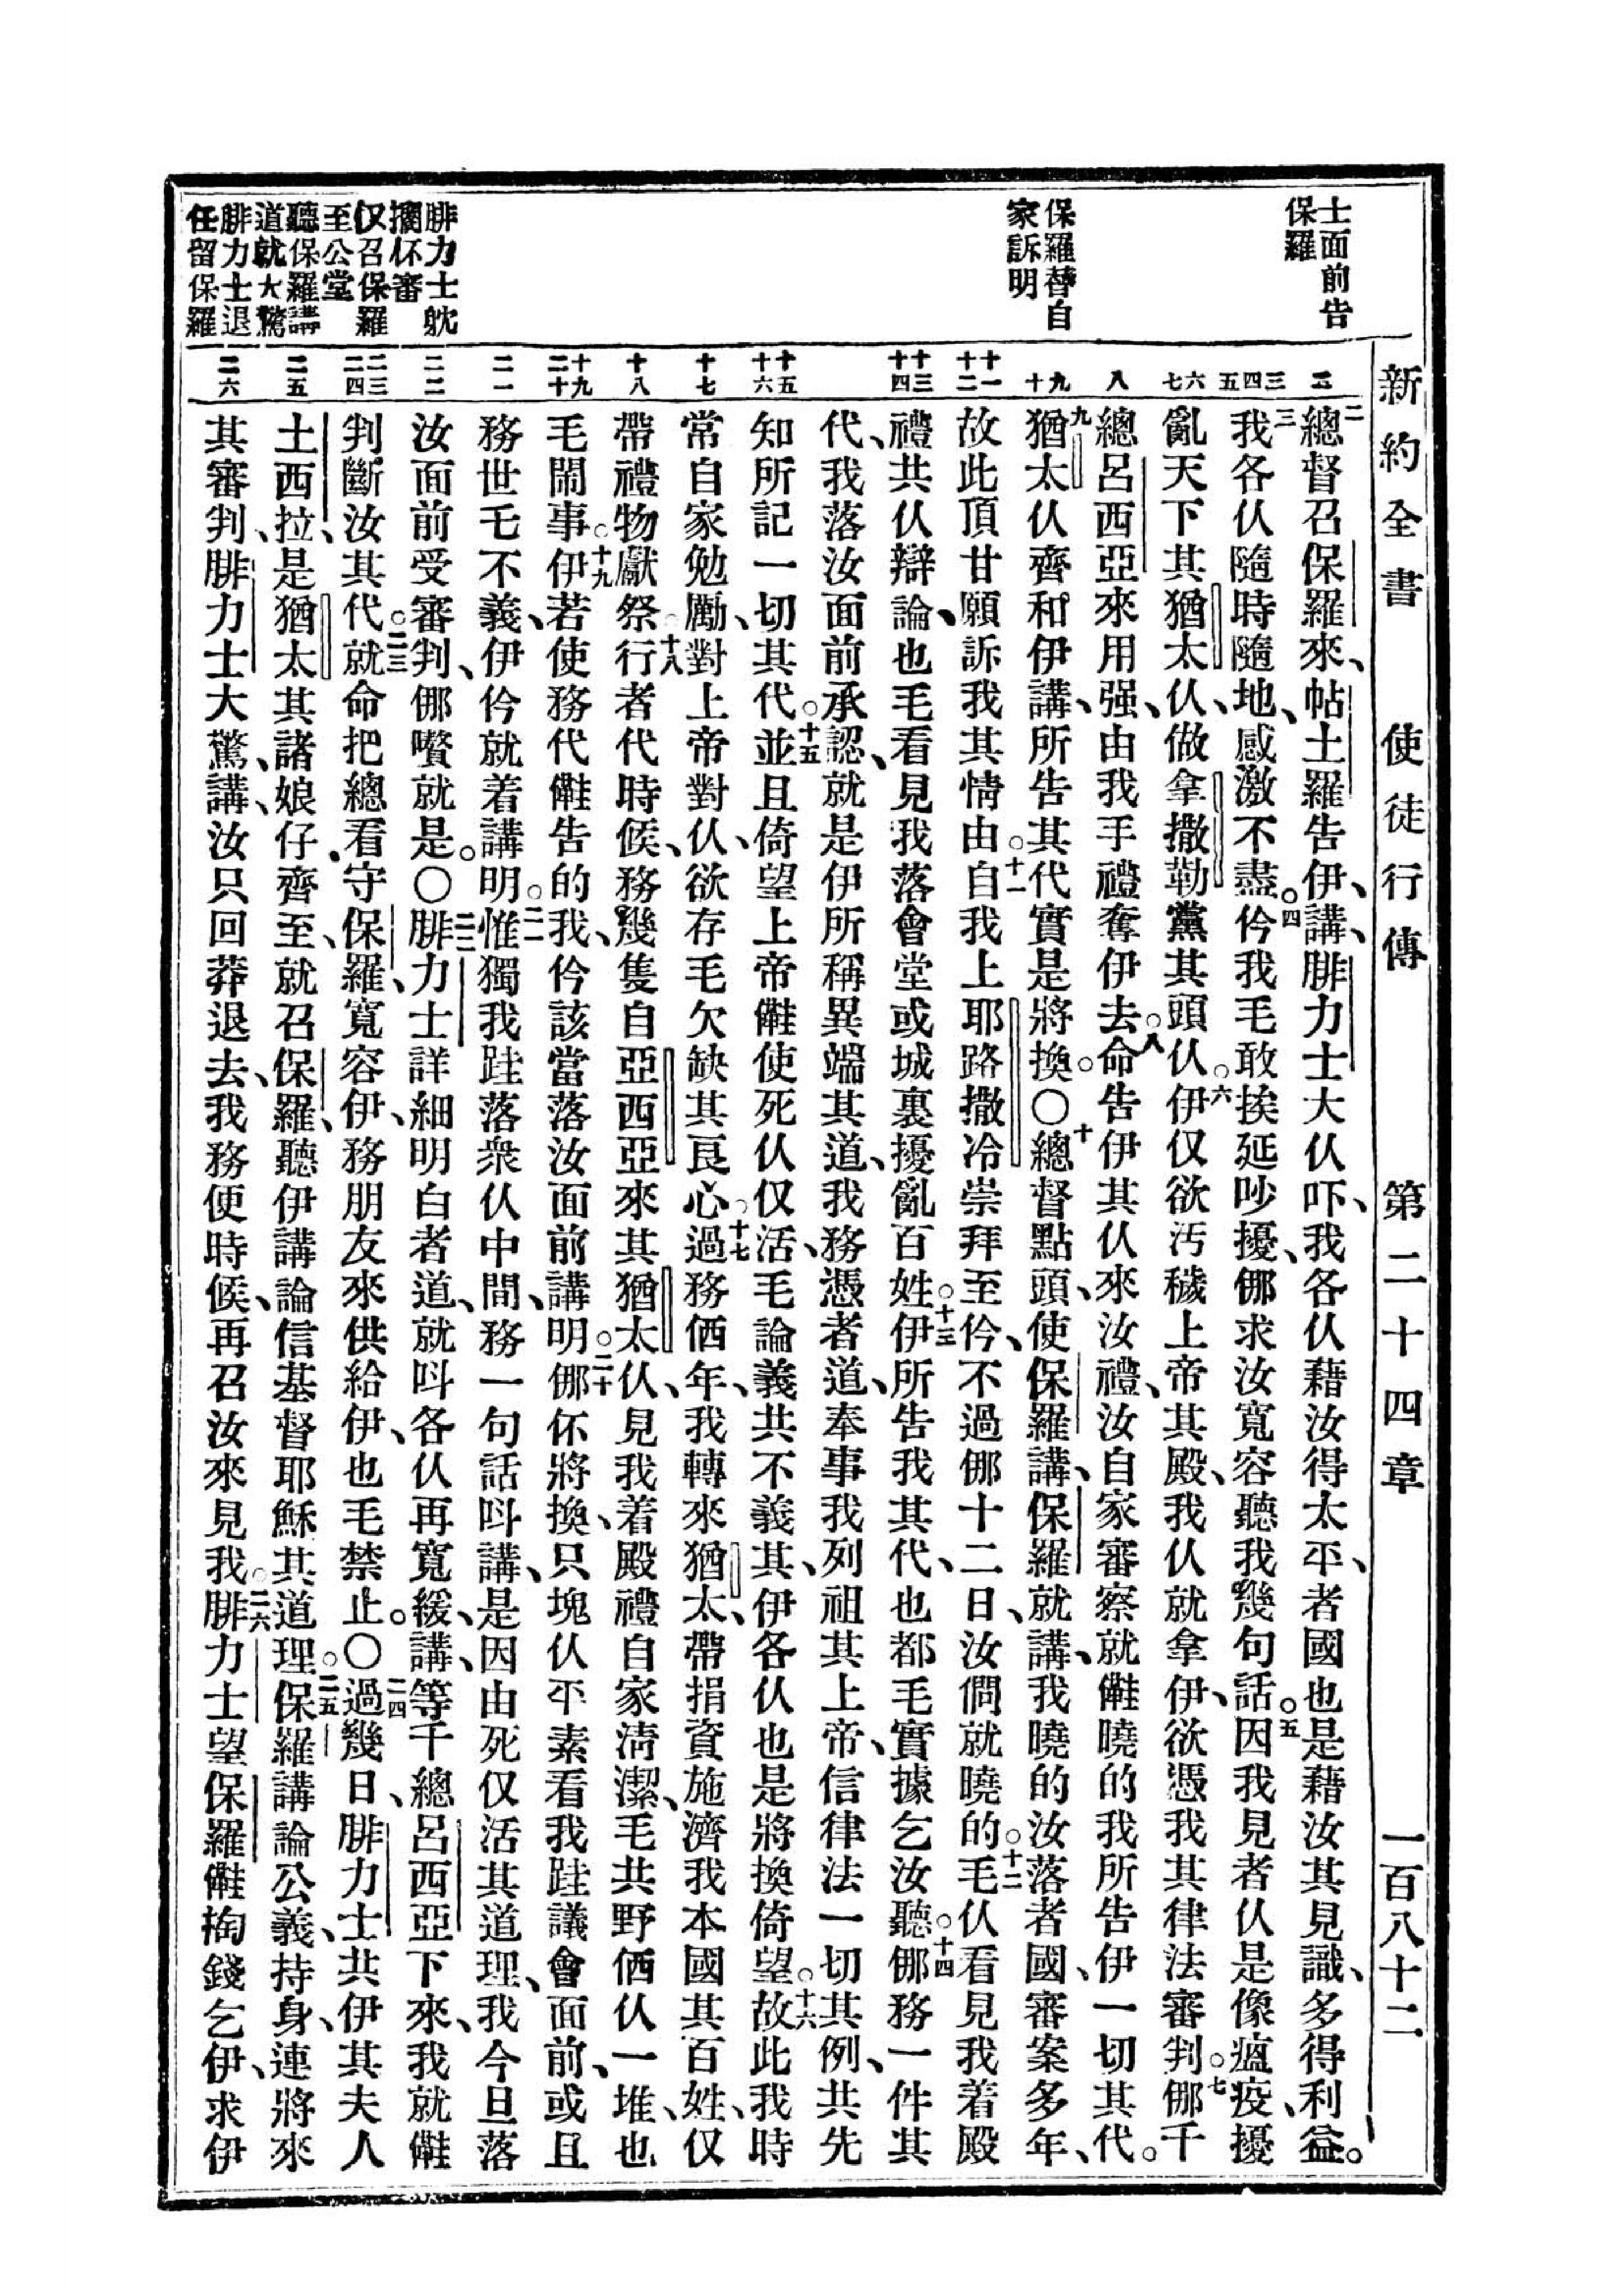 新約全書 使徒行傳 第二十四章 一百八十二
士面前告
保羅
保羅替自
家訴明
腓力士躭
擱伓審
仅召保羅
至公堂
聽保羅講
道就大驚
腓力士退
任留保羅
二
三四五
六七
八
九十
十一十二
十三十四
十五十六
十七
十八
十九二十
二一
二二
二三二四
二五
二六
二總督召保羅來、帖土羅告伊、講、腓力士大仫吓、我各仫藉汝得太平、者國也是藉汝其見識、多得利益。
三我各仫隨時隨地、感激不盡。四伱我毛敢挨延吵擾、㑚求汝寬容聽我幾句話。五因我見者仫是像瘟疫、擾
亂天下其猶太仫、做拿撒勒黨其頭仫。六伊仅欲汚穢上帝其殿、我仫就拿伊、欲憑我其律法審判。七㑚千
總呂西亞來用强、由我手禮奪伊去。八命告伊其仫來汝禮、汝自家審察就㒕曉的我所告伊一切其代。
九猶太仫齊和伊講、所告其代實是將換。〇十總督點頭、使保羅講、保羅就講、我曉的汝落者國、審案多年、
故此頂甘願訴我其情由。十一自我上耶路撒冷崇拜至伱、不過㑚十二日、汝㑚就曉的。十二毛仫看見我着殿
禮共仫辯論、也毛看見我落會堂或城裏擾亂百姓。十三伊所告我其代、也都毛實據乞汝聽。十四㑚務一件其
代、我落汝面前承認、就是伊所稱異端其道、我務憑者道、奉事我列祖其上帝、信律法一切其例、共先
知所記一切其代。十五並且倚望上帝㒕使死仫仅活、毛論義共不義其、伊各仫也是將換倚望。十六故此我時
常自家勉勵、對上帝對仫、欲存毛欠缺其良心。十七過務価年、我轉來猶太、帶捐資施濟我本國其百姓、仅
帶禮物獻祭。十八行者代時候、務幾隻自亞西亞來其猶太仫、見我着殿禮自家淸潔、毛共野価仫一堆、也
毛鬧事。十九伊若使務代㒕告的我、伱該當落汝面前講明。二十㑚伓將換、只塊仫平素看我跬議會面前、或且
務世乇不義、伊伱就着講明。二一惟獨我跬落衆仫中間、務一句話呌講、是因由死仅活其道理、我今旦落
汝面前受審判、㑚嚽就是。〇二二腓力士詳細明白者道、就呌各仫再寬緩、講、等千總呂西亞下來、我就㒕
判斷汝其代。二三就命把總看守保羅、寬容伊、務朋友來供給伊、也毛禁止。〇二四過幾日、腓力士共伊其夫人
土西拉、是猶太其諸娘仔、齊至、就召保羅、聽伊講論信基督耶穌其道理。二五保羅講論公義、持身、連將來
其審判、腓力士大驚、講、汝只回莽退去、我務便時候、再召汝來見我。二六腓力士望保羅㒕掏錢乞伊、求伊